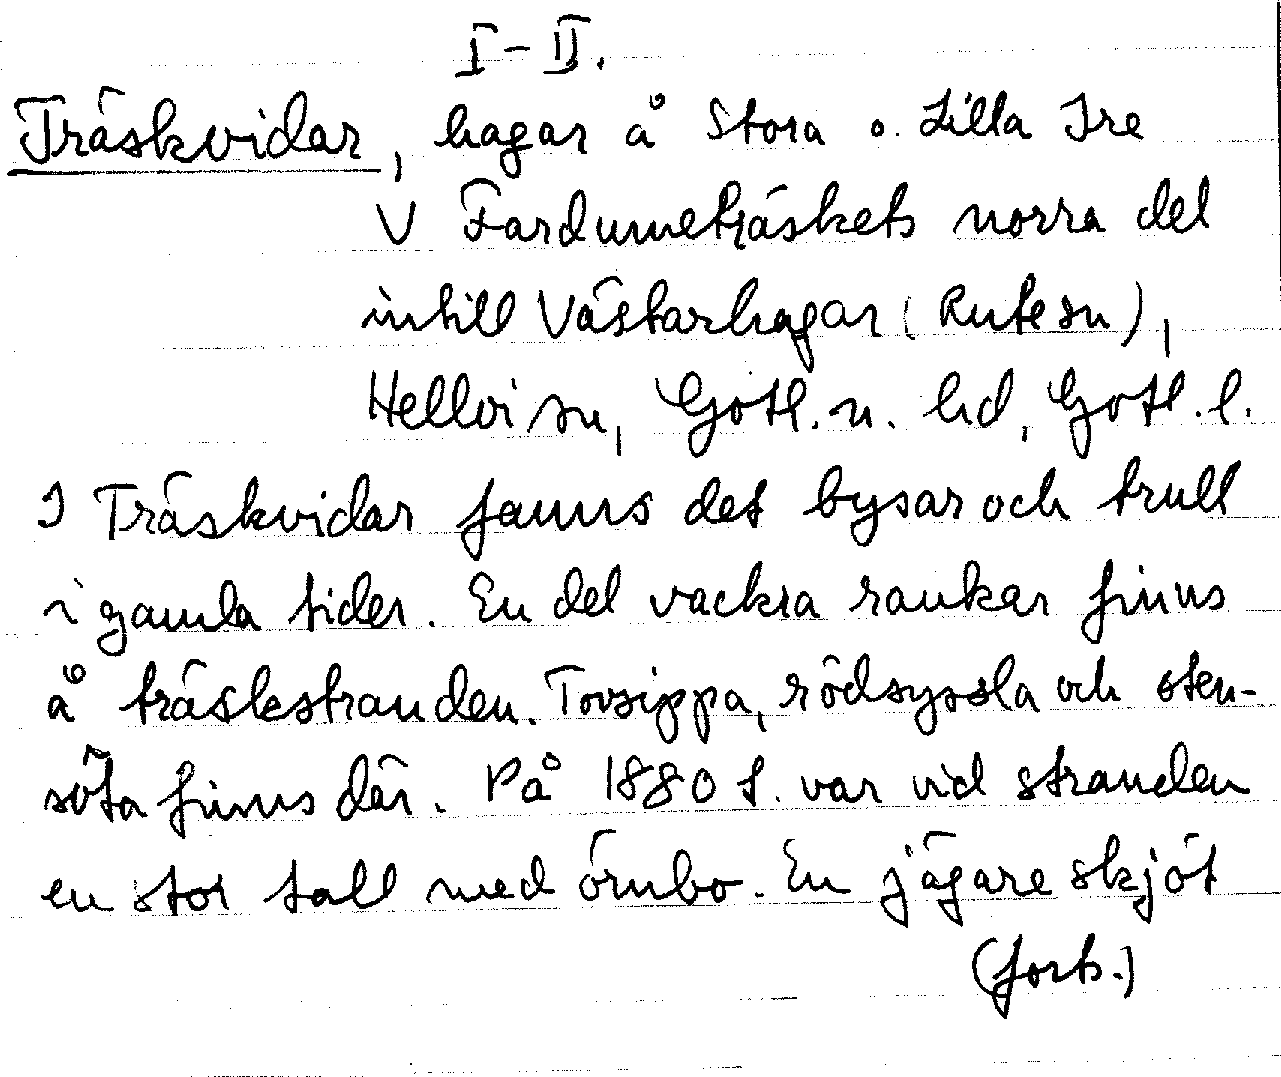 I-II.
Träskvidar, hagar å Stora o. Lilla Ire
V Fardumeträskets norra del
intill Västarhagar (Rute sn),
Hellvi sn, Gotl. n. hd, Gotl. l.
I Träskvidar fanns det bysar och trull
i gamla tider. En del vackra raukar finns
å träskstranden. Tovsippa, rödsyssla och sten-
söta finns där. På 1880 t. var vid stranden
en stor tall med örnbo. En jägare skjöt
(forts.)